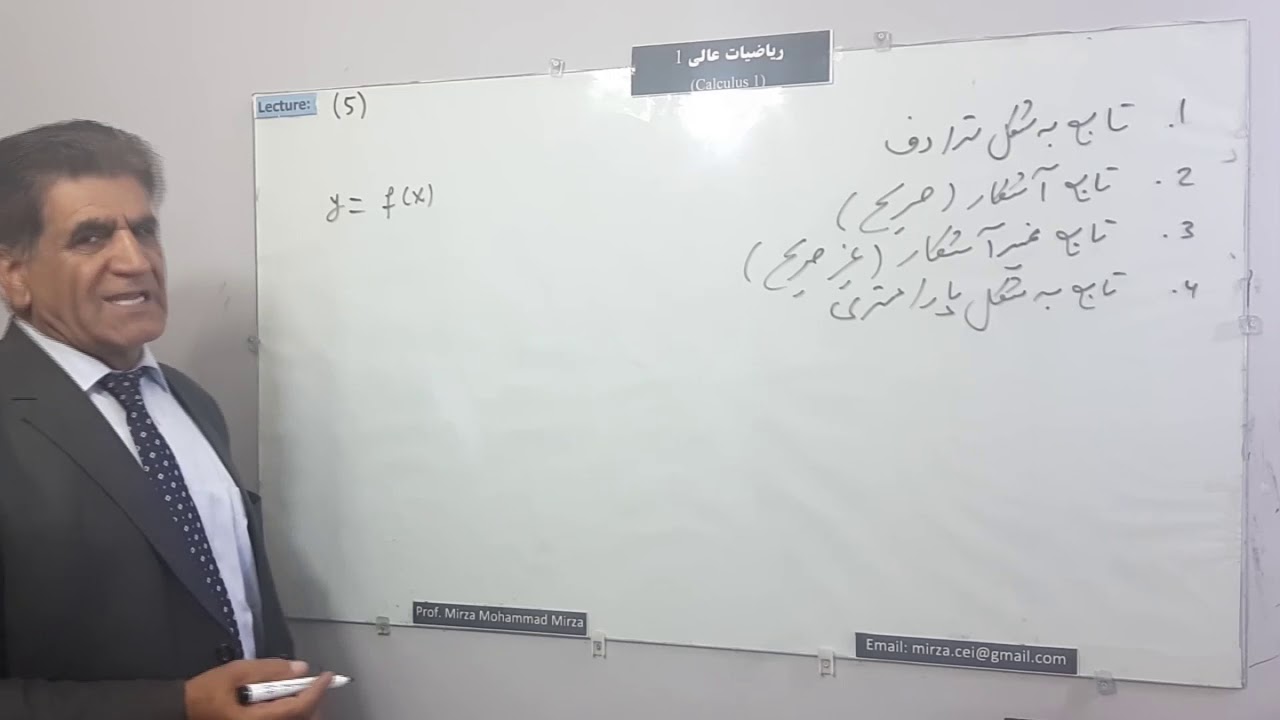 ریاضیات عالی 1
(Calculus 1)
Lecture: (5)
y = f(x)
1. تابع به شکل ترادف
2. تابع آشکار (صریح)
3. تابع غیر آشکار (غیر صریح)
4. تابع به شکل پارامتری
Prof. Mirza Mohammad Mirza
Email: mirza.cei@gmail.com